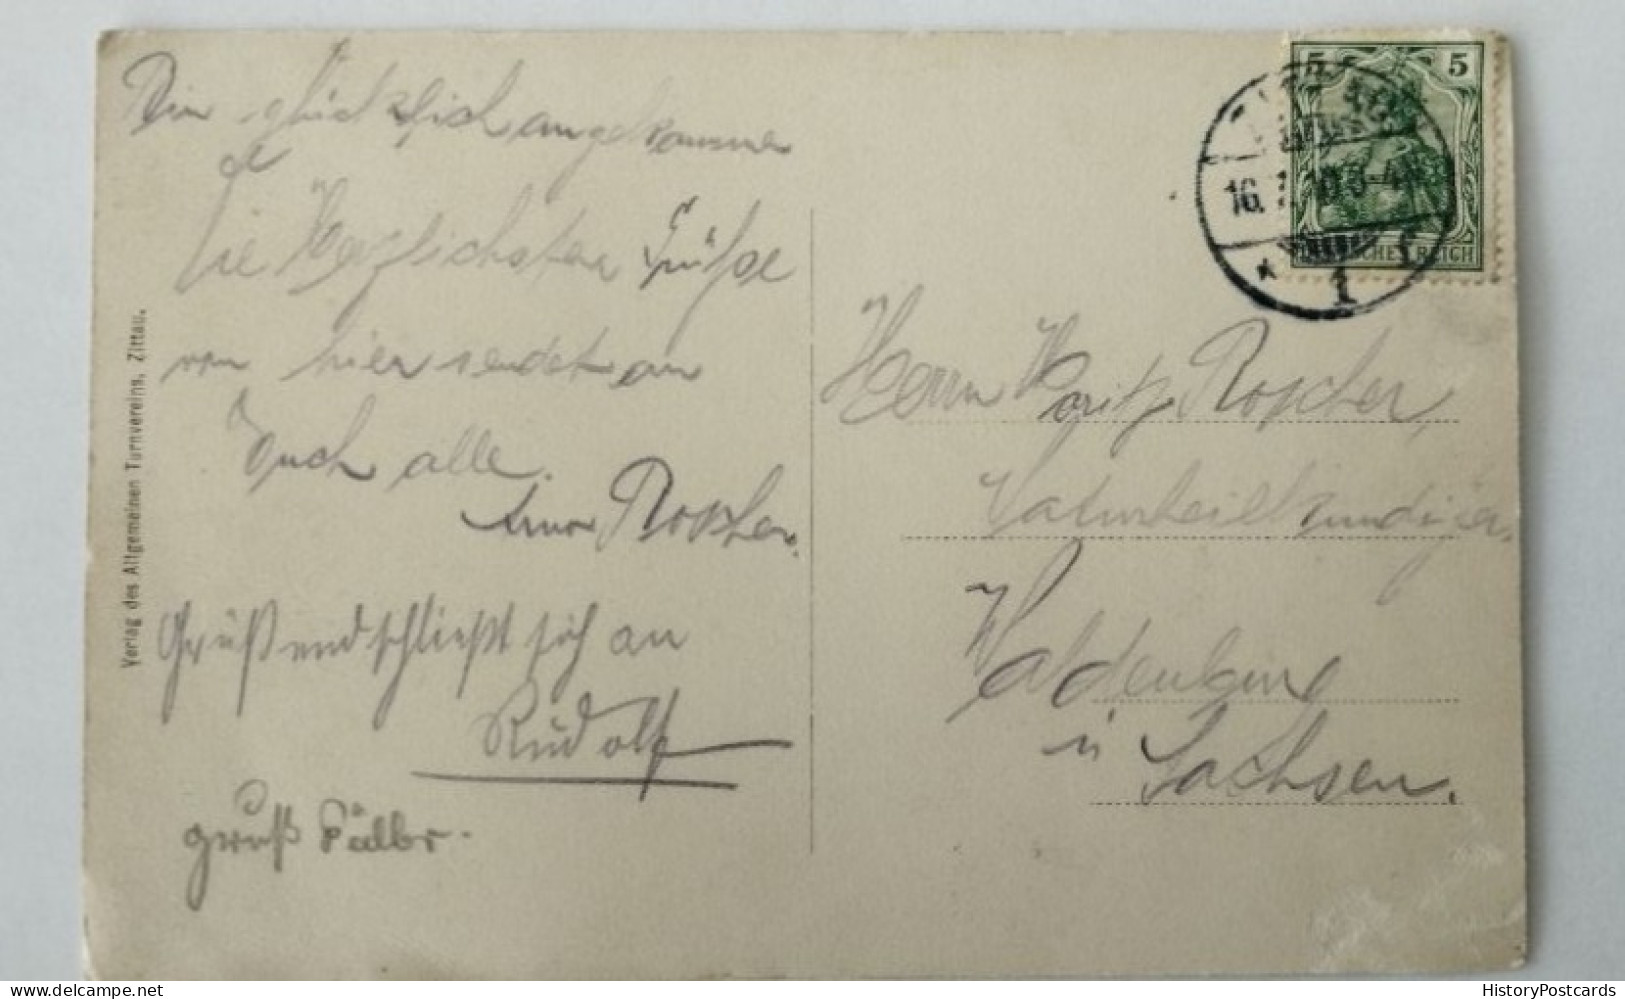 Bin glücklich angekommen
die Herzlichsten Grüße
von hier sendet an
Euch alle.
Arno Roscher.
Grüß end schließt sich an
Rudolf
Gruß
Verlag des Allgemeinen Turnvereins, Zittau.
5 5
16. 10. 3-4
1
DEUTSCHES REICH
Herrn Moritz Roscher,
Naturheilkundiger
Waldenburg
in Sachsen.
HistoryPostcards